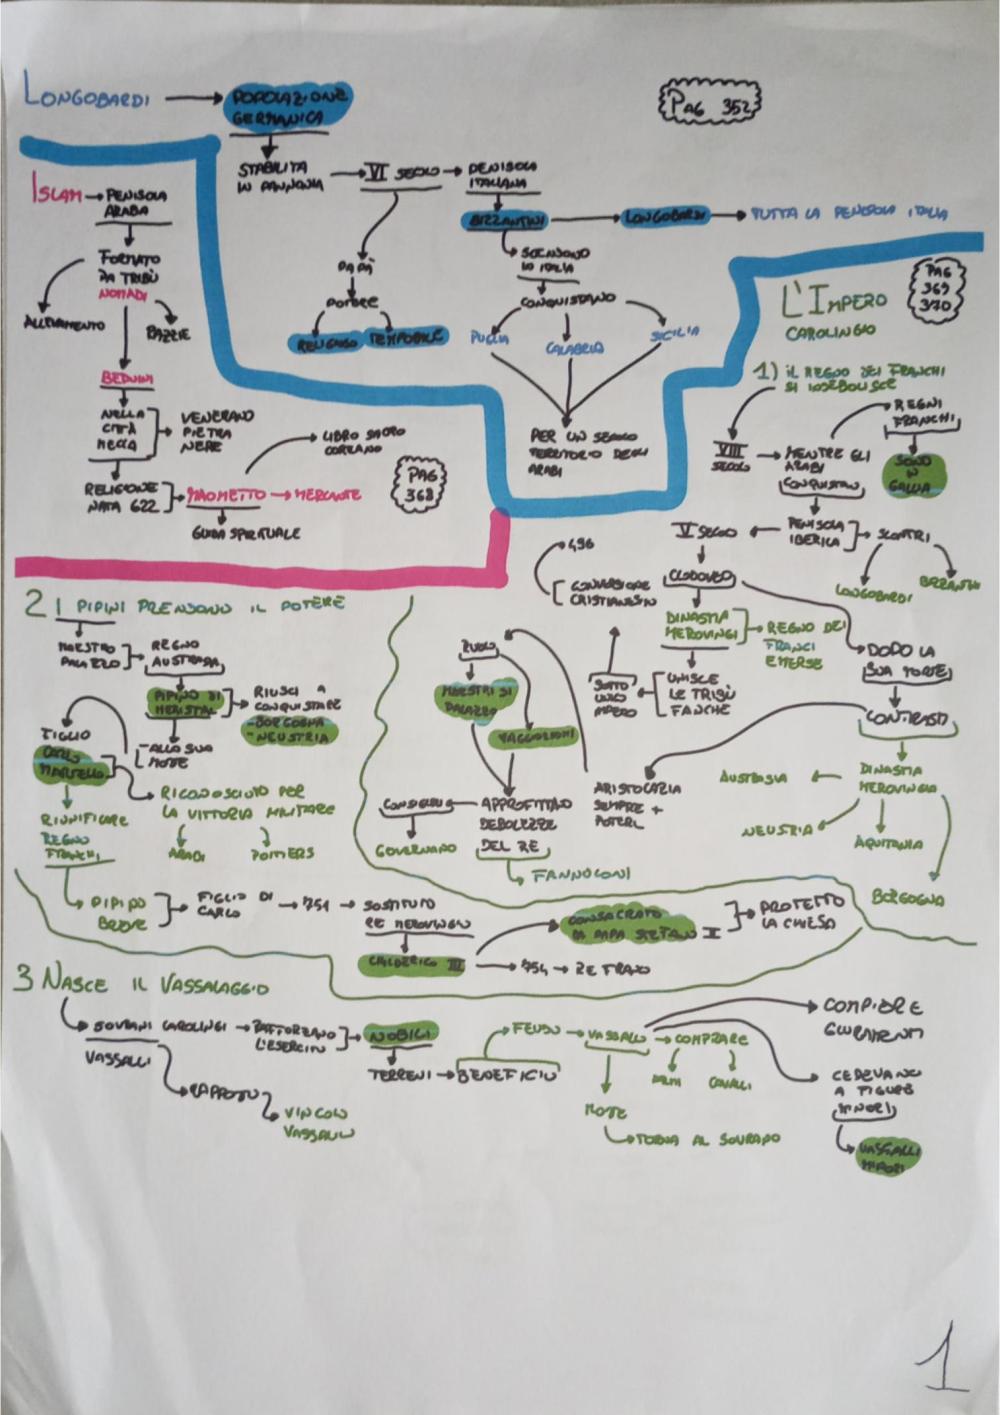 LONGOBARDI
POPOLAZIONE
GERMANICA
PAG 352
STABILITA
IN PANNONIA
VI SECOLO
PENISOLA
ITALIANA
BIZZANTINI
LONGOBARDI
TUTTA LA PENISOLA ITALIA
SCENDONO
IN ITALIA
CONQUISTANO
PUGLIA
CALABRIA
SICILIA
PER UN SECOLO
TERRITORIO DEGLI
ARABI
PAPÀ
POTERE
RELIGIOSO
TEMPORALE
ISLAM
PENISOLA
ARABA
FORMATO
DA TRIBÙ
NOMADI
ALLEVAMENTO
RAZZIE
BEDUINI
NELLA
CITTÀ
MECCA
VENERANO
PIETRA
NERE
LIBRO SACRO
CORANO
RELIGIONE
NATA 622
MAOMETTO
MERCANTE
GUIDA SPIRITUALE
PAG
368
L'IMPERO
CAROLINGIO
PAG
369
370
1) IL REGNO DEI FRANCHI
SI INDEBOLISCE
VIII
SECOLO
MENTRE GLI
ARABI
CONQUISTAN
REGNI
FRANCHI
SONO
IN
GALLIA
PENISOLA
IBERICA
SCONTRI
LONGOBARDI
BIZZANTINI
V SECOLO
CLODOVEO
496
CONVERSIONE
CRISTIANESIMO
DINASTIA
MEROVINGI
REGNO DEI
FRANCI
EMERSE
UNISCE
LE TRIBÙ
FANCHE
SOTTO
UNICO
IMPERO
DOPO LA
SUA MORTE
CONTRASTI
DINASTIA
MEROVINGIA
AUSTRASIA
NEUSTRIA
AQUITANIA
BORGOGNA
ARISTOCRAZIA
SEMPRE +
POTERI
RUOLO
MAESTRI DI
PALAZZO
MAGGIORDOMI
APPROFITTANO
DEBOLEZZE
DEL RE
GOVERNARO
FANNULLONI
2 I PIPINI PRENSONO IL POTERE
MAESTRO
PALAZZO
REGNO
AUSTRASIA
PIPINO DI
HERISTAL
RIUSCI A
CONQUISTARE
-BORGOGNA
-NEUSTRIA
-ALLA SUA
MORTE
FIGLIO
CARLO
MARTELLO
RICONOSCIUTO PER
LA VITTORIA MILITARE
ARABI
POITIERS
RIUNIFICARE
REGNO
FRANCHI
PIPINO
BREVE
FIGLIO DI
CARLO
751
SOSTITUTO
RE MEROVINGIO
CHILDERICO III
CONSACRATO
DA PAPA STEFANO II
754
RE FRANO
PROTETTO
LA CHIESA
3 NASCE IL VASSALAGGIO
SOVRANI CAROLINGI
RAFFORZANO
L'ESERCITO
NOBILI
VASSALLI
RAPPORTO
VINCOLO
VASSALLO
TERRENI
BENEFICIO
FEUDO
VASSALLO
COMPRARE
ARMI
CAVALLI
MORTE
TORNA AL SOVRANO
COMPIERE
GIURAMENTI
CEDEVANO
A FIGURE
MINORI
VASSALLI
MINORI
1